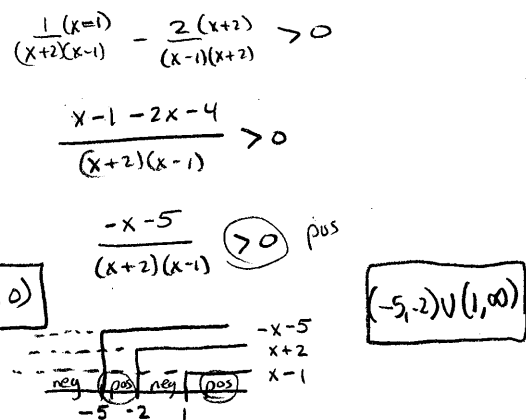 1(x-1)/(x+2)(x-1) - 2(x+2)/(x-1)(x+2) > 0
x-1-2x-4/(x+2)(x-1) > 0
-x-5/(x+2)(x-1) > 0 pos
0)
(-5,-2)∪(1,∞)
-x-5
x+2
x-1
neg pos neg pos
-5 -2 1